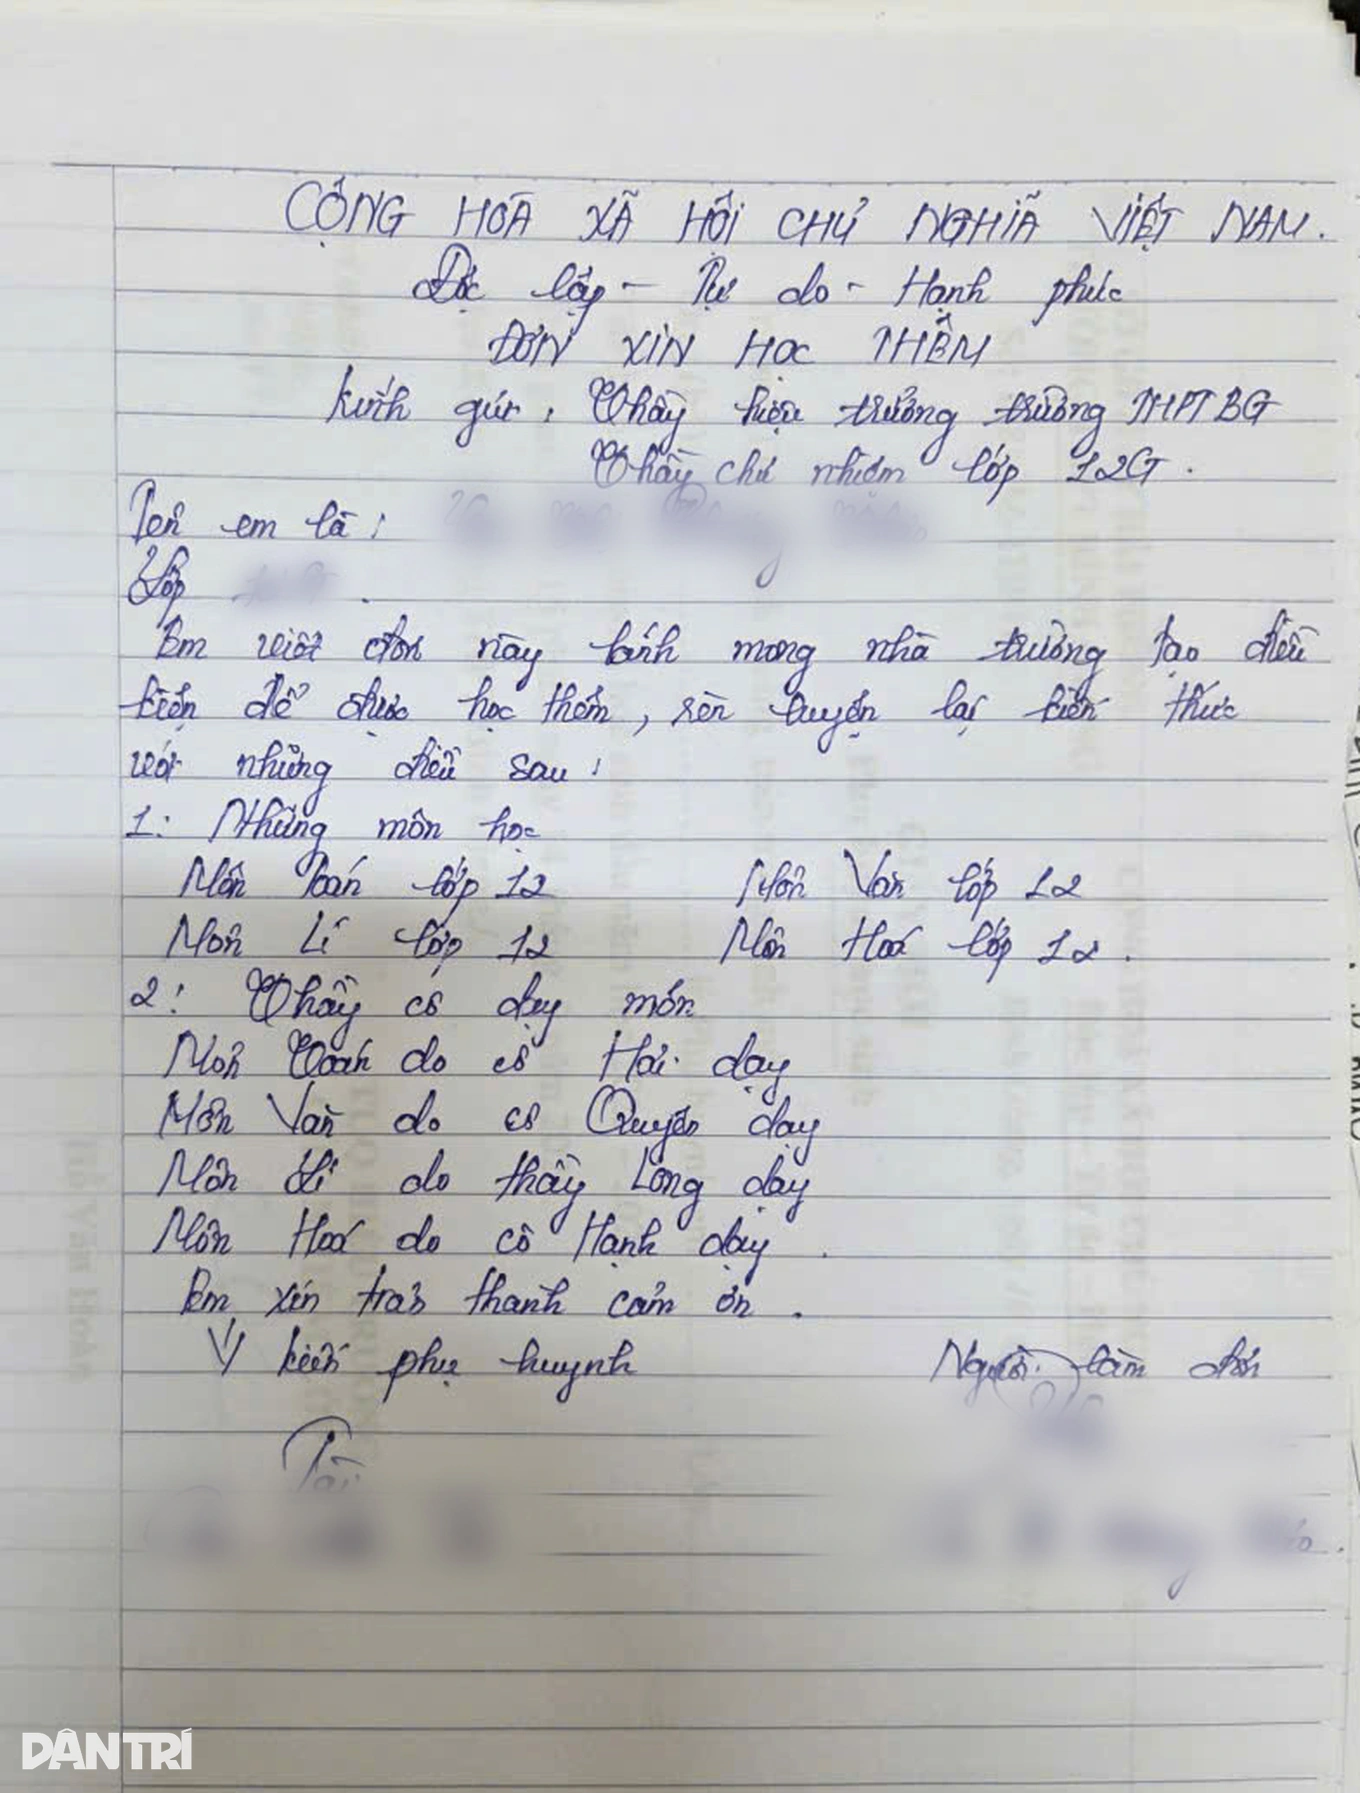 CỘNG HÒA XÃ HỘI CHỦ NGHĨA VIỆT NAM.
Độc lập - Tự do - Hạnh phúc
ĐƠN XIN HỌC THÊM
Kính gửi: Thầy hiệu trưởng trường THPT BG
Thầy chủ nhiệm lớp 12G.
Tên em là:
Lớp .
Em viết đơn này kính mong nhà trường tạo điều
kiện để được học thêm, rèn luyện lại kiến thức
với những điều sau:
1: Những môn học
Môn Toán lớp 12 Môn Văn lớp 12
Môn Lí lớp 12 Môn Hoá lớp 12.
2: Thầy cô dạy môn
Môn Toán do cô Hải dạy
Môn Văn do cô Quyên dạy
Môn Lí do thầy Long dạy
Môn Hoá do cô Hạnh dạy.
Em xin trân thành cảm ơn.
Ý kiến phụ huynh Người làm đơn
DÂN TRÍ